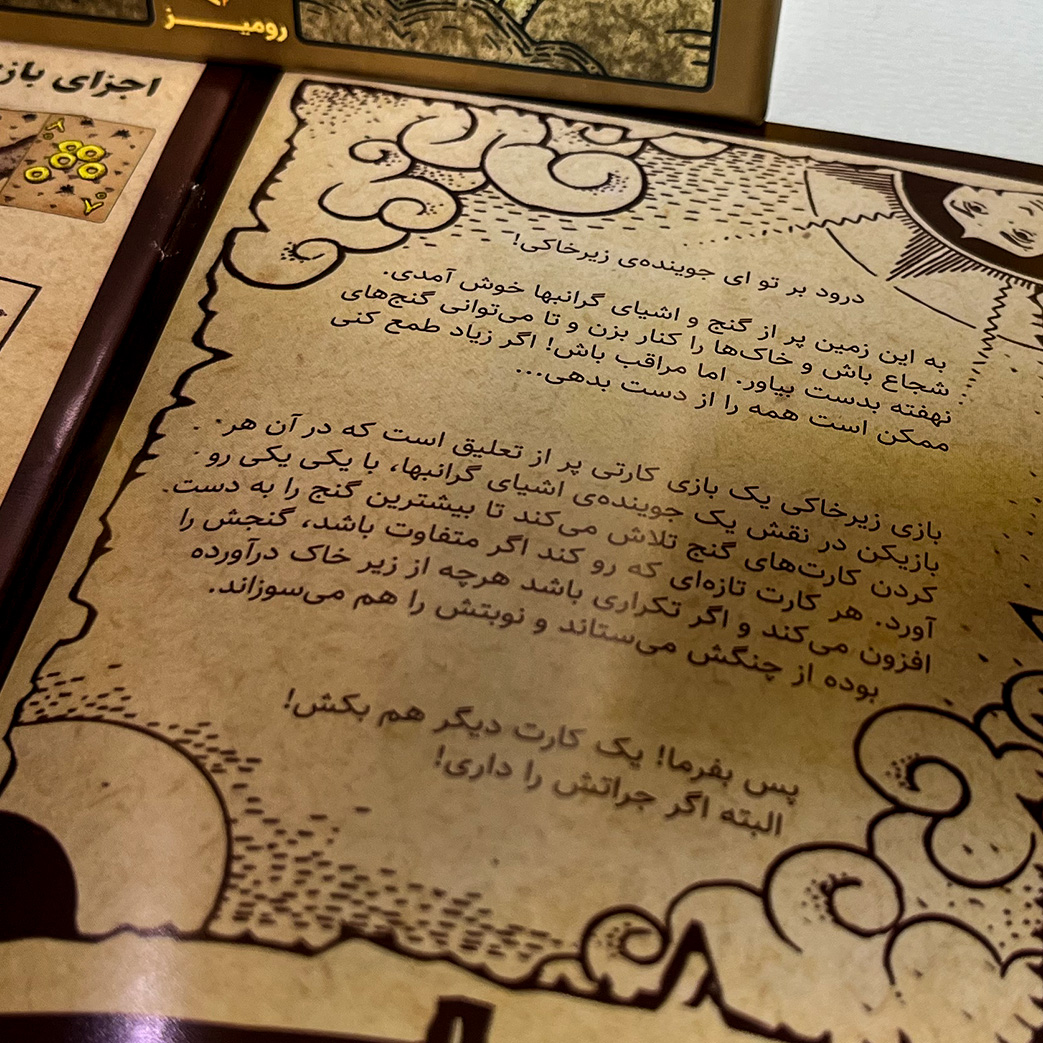 رومیز
اجزای باز
درود بر تو ای جوینده‌ی زیرخاکی!
به این زمین پر از گنج و اشیای گرانبها خوش آمدی.
شجاع باش و خاک‌ها را کنار بزن و تا می‌توانی گنج‌های
نهفته بدست بیاور. اما مراقب باش! اگر زیاد طمع کنی
ممکن است همه را از دست بدهی...
بازی زیرخاکی یک بازی کارتی پر از تعلیق است که در آن هر
بازیکن در نقش یک جوینده‌ی اشیای گرانبها، با یکی یکی رو
کردن کارت‌های گنج تلاش می‌کند تا بیشترین گنج را به دست
آورد. هر کارت تازه‌ای که رو کند اگر متفاوت باشد، گنجش را
افزون می‌کند و اگر تکراری باشد هرچه از زیر خاک درآورده
بوده از چنگش می‌ستاند و نوبتش را هم می‌سوزاند.
پس بفرما! یک کارت دیگر هم بکش!
البته اگر جراتش را داری!